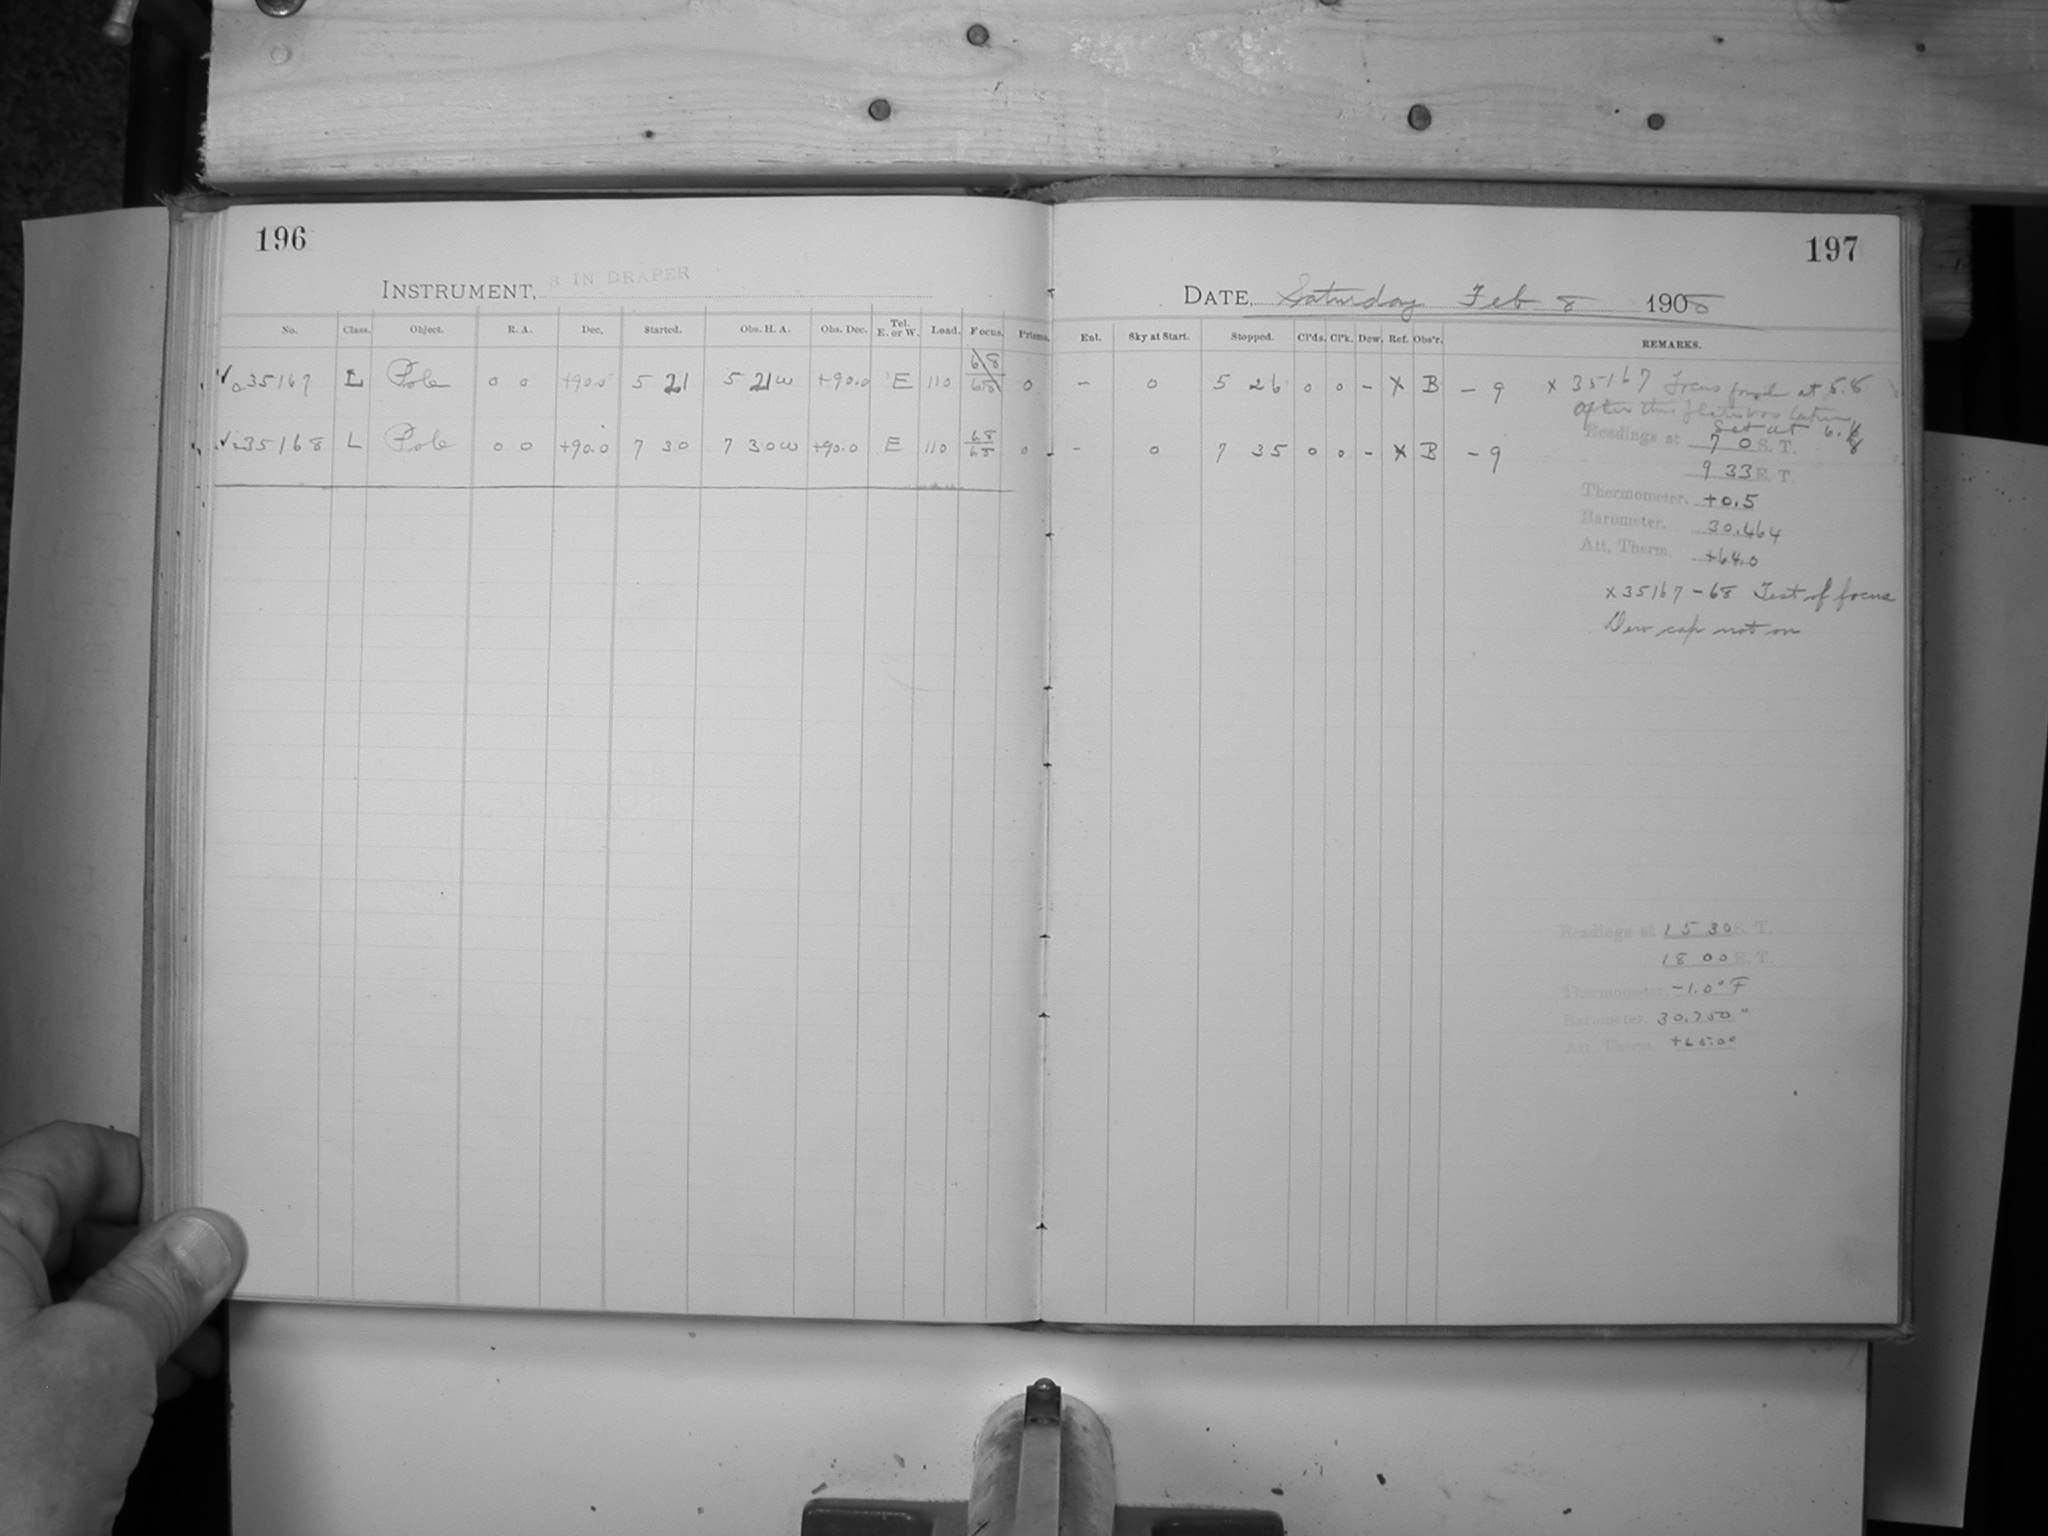 196
INSTRUMENT, 8 IN DRAPER
No. Class. Object. R. A. Dec. Started. Obs. H. A. Obs. Dec. Tel. E. or W. Load. Focus. Prisms.
35167 L Pole 0 0 +90.0 5 21 5 21W +90.0 E 110 6.8 0
35168 L Pole 0 0 +90.0 7 30 7 30W +90.0 E 110 6.8 0
197
DATE, Saturday Feb 8 1908
Ent. Sky at Start. Stopped. Cl'ds. Cl'k. Dew. Ref. Obs'r. REMARKS.
– 0 5 26 0 0 – X B – 9 x 35167 Focus found at 5.8
after this
Set at 6.
– 0 7 35 0 0 – X B – 9
Readings at 7 0 S. T.
9 33 E. T.
Thermometer. +0.5
Barometer. 30.464
Att. Therm. +64.0
x 35167 – 68 Test of focus
Dew cap not on
Readings at 15 30 S. T.
18 00 E. T.
Thermometer. –1.0° F
Barometer. 30.750"
Att. Therm. +65.00